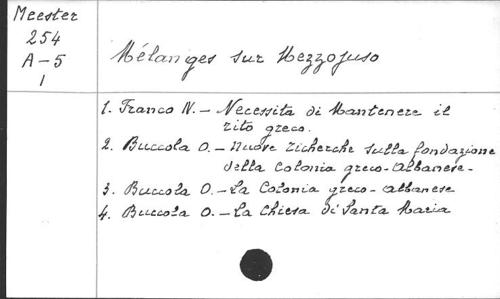 Meester
254
A-5
1
Mélanges sur Mezzojuso
1. Franco N. - Necessita di Mantenere il
rito greco.
2. Buccola O. - Nuove ricerche sulla fondazione
della Colonia greco-Albanese-
3. Buccola O. - La Colonia greco-albanese
4. Buccola O. - La Chiesa di Santa Maria